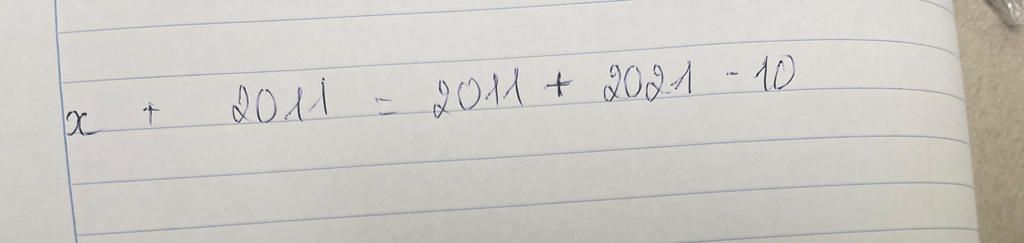 x + 2011 = 2011 + 2021 - 10